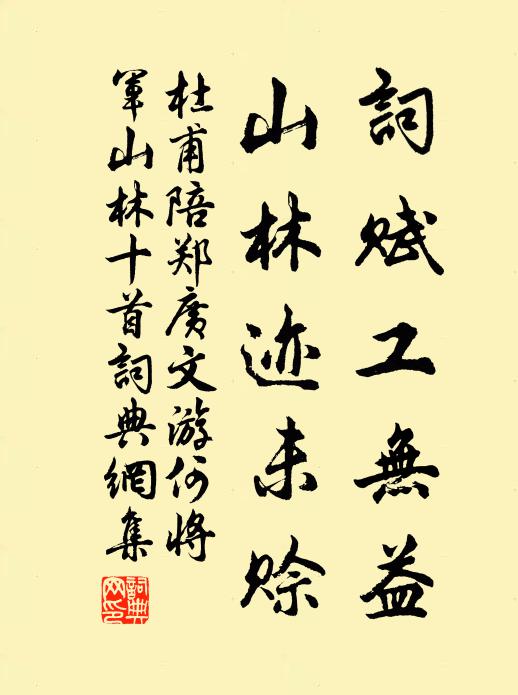 詞賦工無益
山林迹未賒
杜甫陪郑廣文游何將
軍山林十首詞典網集
詞典網印